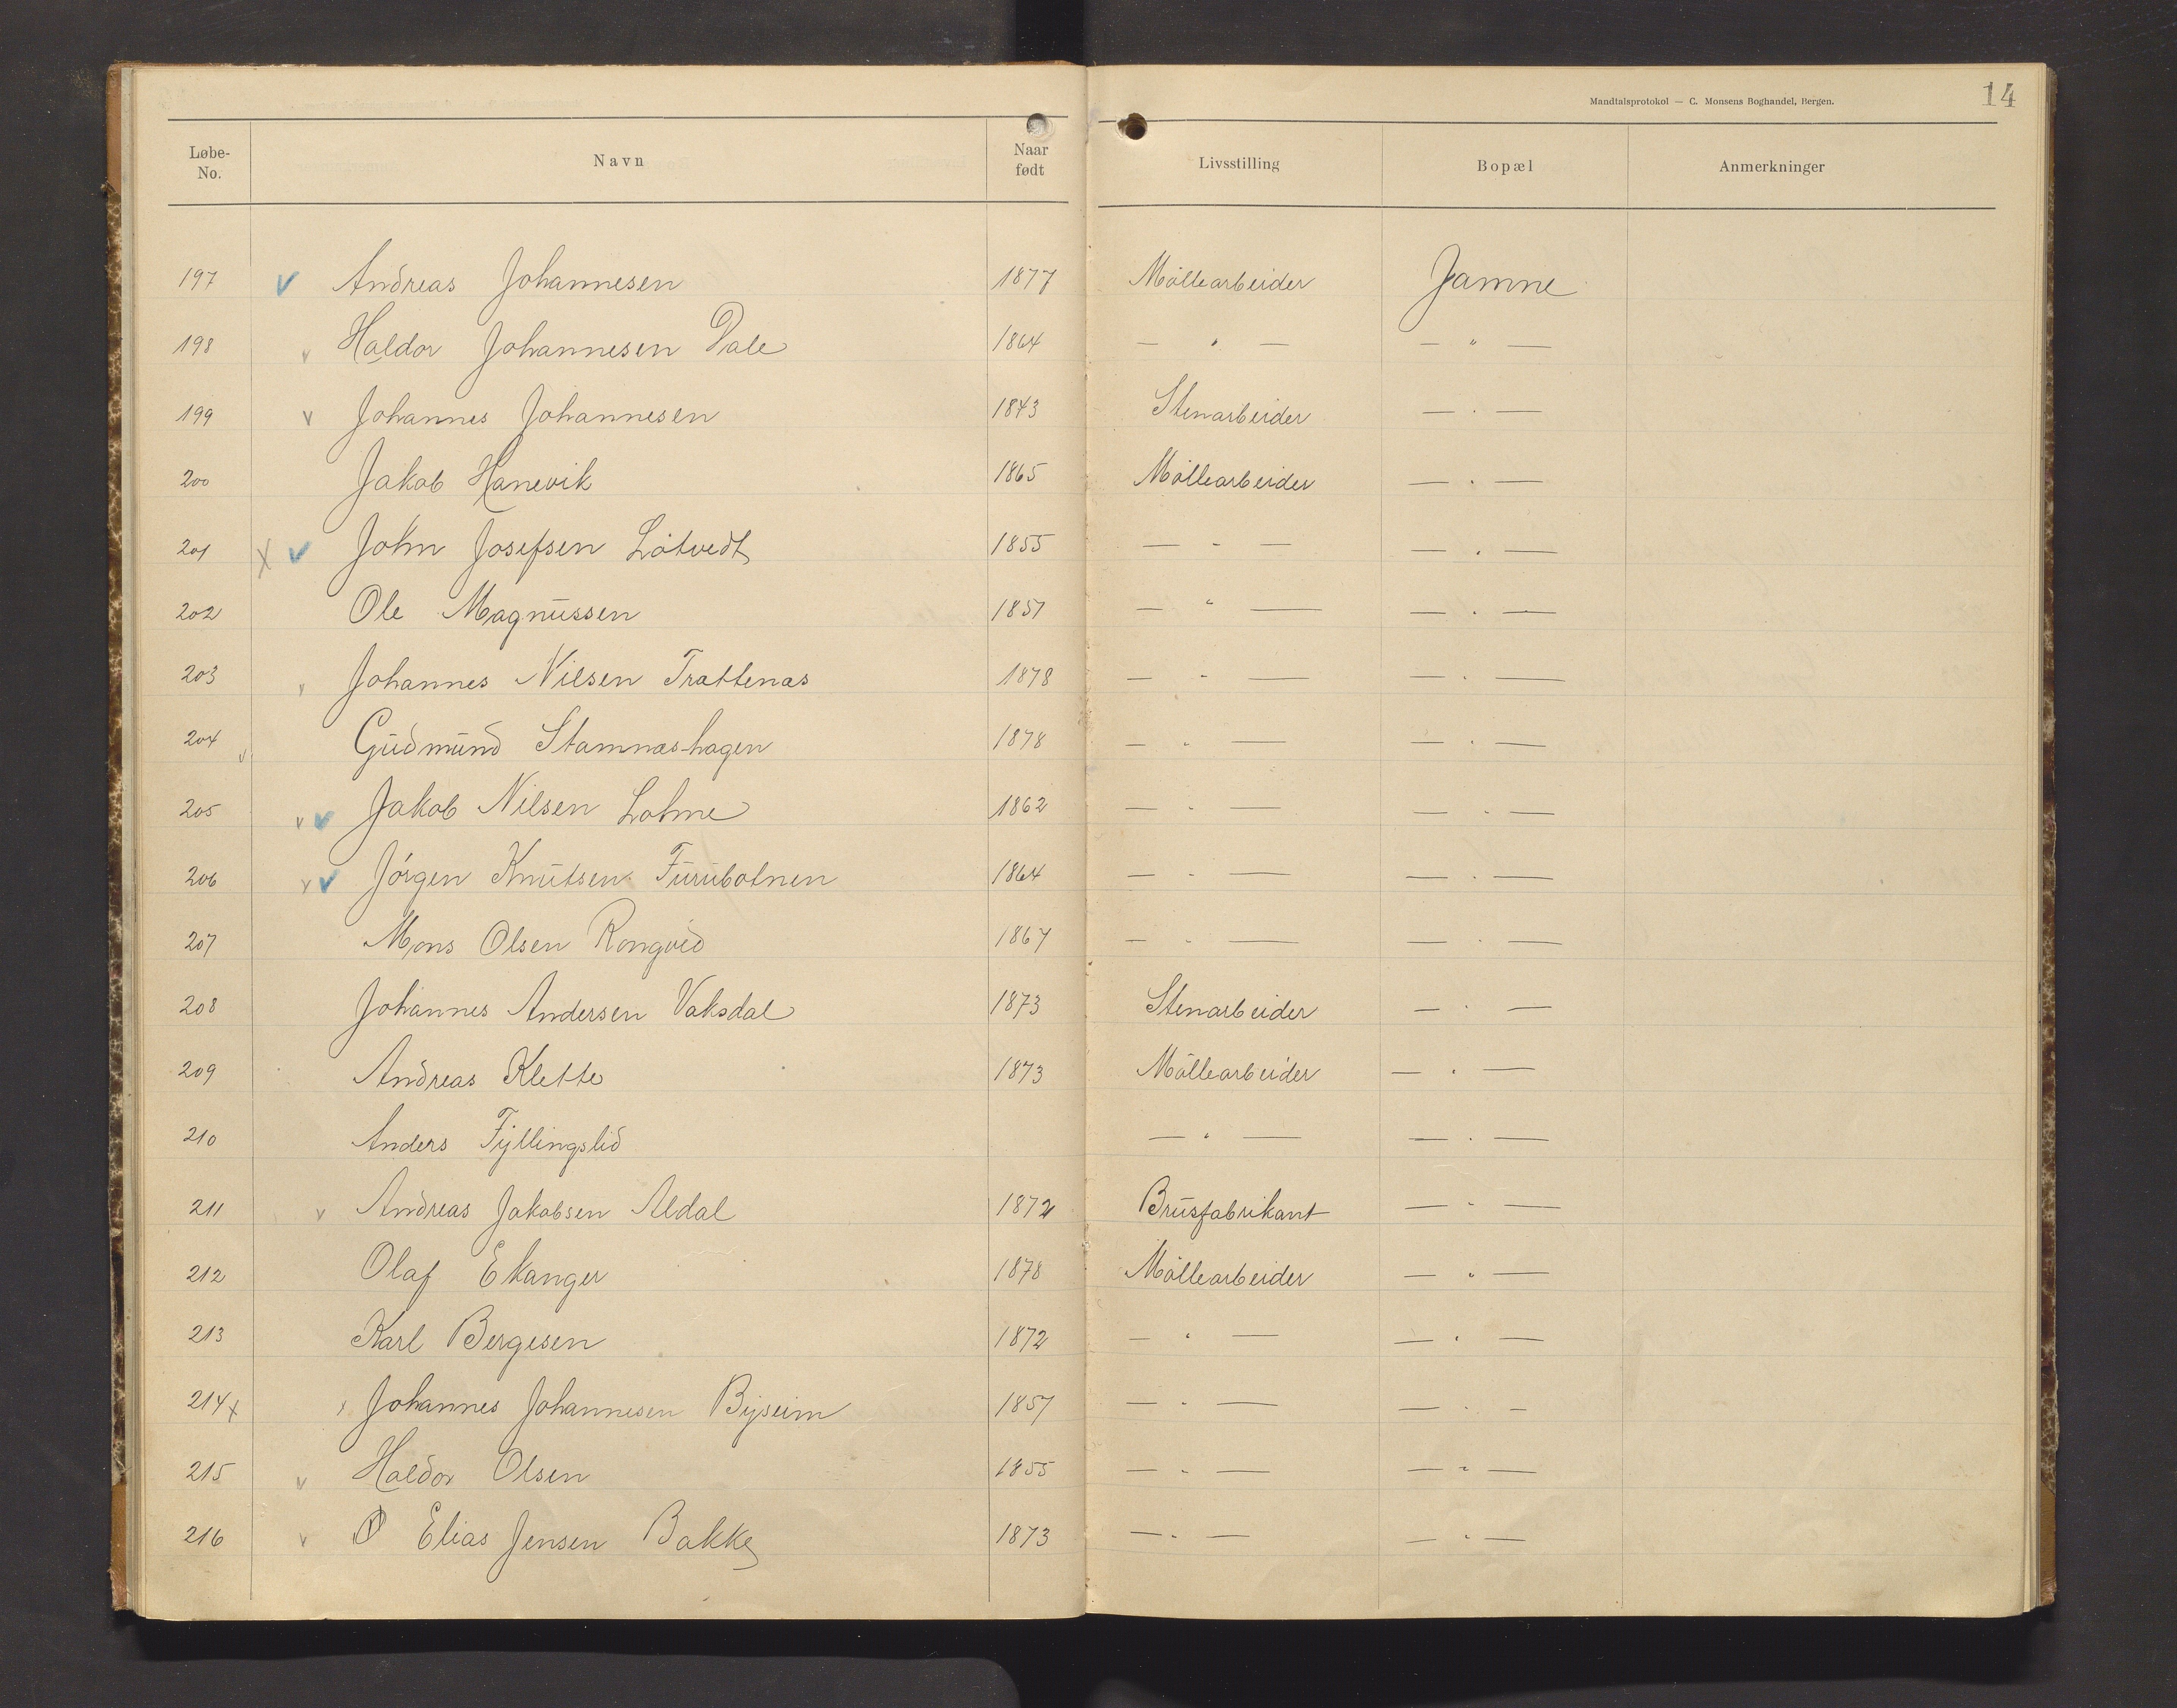 Mandtalsprotokol — C. Monsens Boghandel, Bergen. 14
Løbe-No. Navn Naar født Livsstilling Bopæl Anmerkninger
197 v Andreas Johannesen 1877 Möllearbeider Jamne
198 v Haldor Johannesen Dale 1864 — " — — " —
199 v Johannes Johannesen 1843 Stenarbeider — " —
200 Jakob Hanevik 1865 Möllearbeider — " —
201 x v John Josefsen Lötvedt 1855 — " — — " —
202 Ole Magnussen 1857 — " — — " —
203 v Johannes Nilsen Trattenæs 1878 — " — — " —
204 v Gudmund Stamnæshagen 1878 — " — — " —
205 v v Jakob Nilsen Lohne 1862 — " — — " —
206 v v Jörgen Knutsen Furubotnen 1864 — " — — " —
207 Mons Olsen Rongved 1867 — " — — " —
208 Johannes Andersen Vaksdal 1873 Stenarbeider — " —
209 Andreas Klette 1873 Möllearbeider — " —
210 Anders Fyllingslid — " — — " —
211 v Andreas Jakobsen Aldal 1872 Brusfabrikant — " —
212 Olaf Ekanger 1878 Möllearbeider — " —
213 Karl Bergesen 1872 — " — — " —
214 x x Johannes Johannesen Byseim 1857 — " — — " —
215 v Haldor Olsen 1855 — " — — " —
216 v O Elias Jensen Bakke 1873 — " — — " —